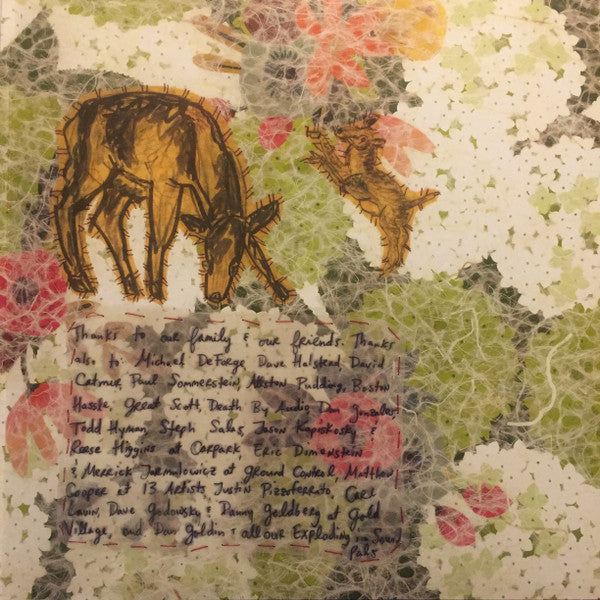 Thanks to our family & our friends. Thanks
also to: Michael DeForge, Dave Halstead, David
Catmur, Paul Sommerstein, Allston Pudding, Boston
Hassle, Great Scott, Death By Audio, Dan Gonzalez,
Todd Hyman, Steph Salas, Jason Kaposkosky &
Reese Higgins at Carpark, Eric Dimenstein
& Merrick Jarmulowicz at Ground Control, Matthew
Cooper at 13 Artists, Justin Pizzoferrato, Carl
Lavin, Dave Godowsky & Danny Goldberg at Gold
Village, and Dan Goldin & all our Exploding in Sound
Pals